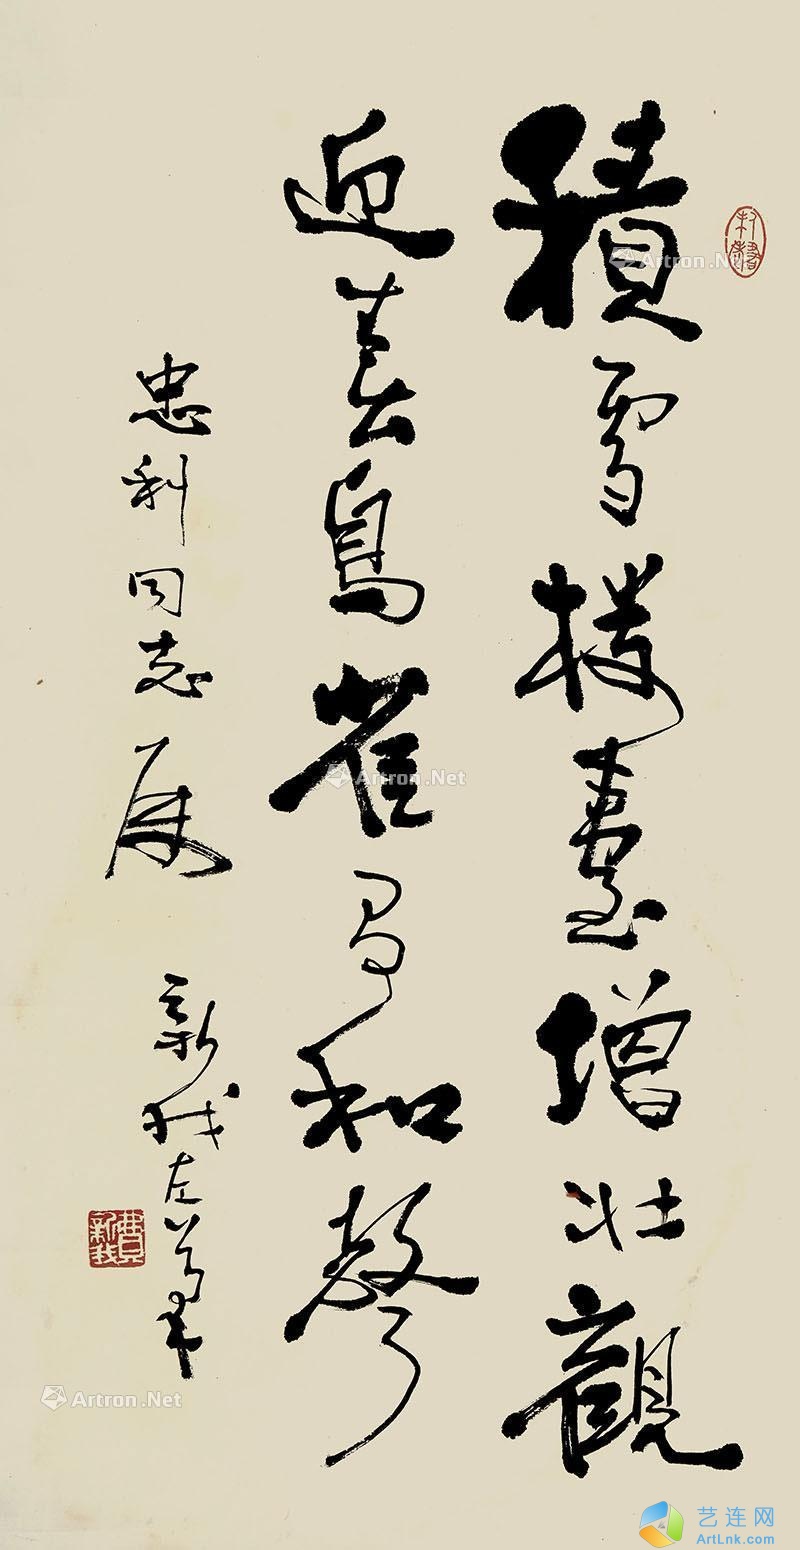 積雪樓臺增壯觀
迎春鳥雀有和聲
忠利同志属 新我左筆
費新我
Artron.Net
Artron.Net
Artron.Net
艺连网
ArtLnk.com